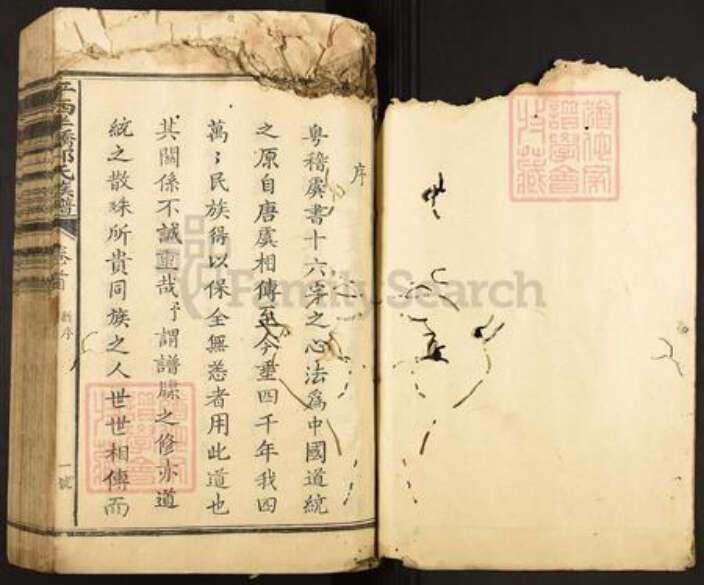 序
粵稽虞書十六字之心法爲中國道統
之原自唐虞相傳至今垂四千年我四
萬〻民族得以保全無恙者用此道也
其關係不誠重哉予謂譜牒之修亦道
統之散殊所貴同族之人世世相傳而
氏族譜
卷首
新序
一號
譜學會
收藏
FamilySearch